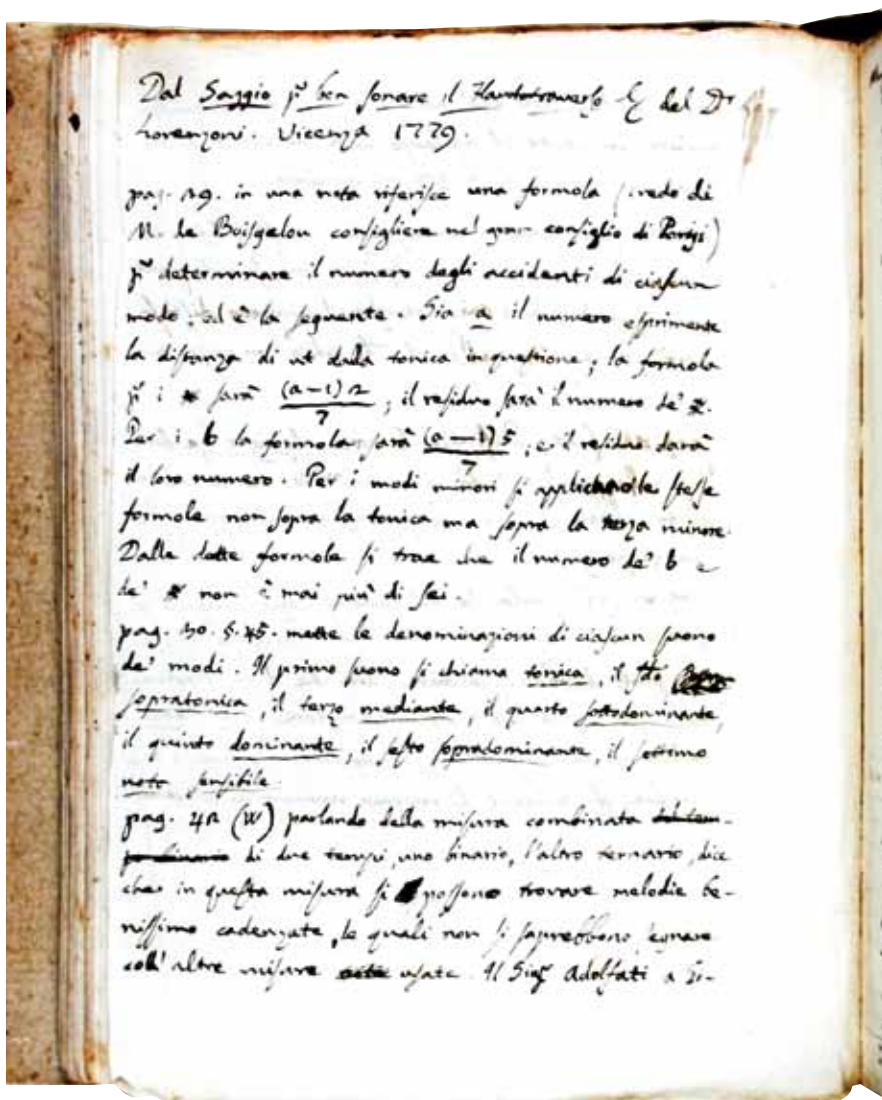 Dal Saggio p ben sonare il Flautotraverso &c del Dr
Lorenzoni. Vicenza 1779.
pag. 29. in una nota riferisce una formola (credo di
M. de Boisgelou consigliere nel gran consiglio di Parigi)
p determinare il numero degli accidenti di ciascun
modo, ed è la seguente. Sia a il numero esprimente
la distanza di ut dalla tonica in questione; la formola
p i # sarà (a-1)2/7, il residuo sarà il numero de' #.
Per i b la formola sarà (a-1)5/7, e il residuo darà
il loro numero. Per i modi minori si applicano le stesse
formole non sopra la tonica ma sopra la terza minore.
Dalle dette formole si trae che il numero de' b e
de' # non è mai più di sei.
pag. 30. §. 45. mette le denominazioni di ciascun suono
de' modi. Il primo suono si chiama tonica, il sdo
sopratonica, il terzo mediante, il quarto sottodominante,
il quinto dominante, il sesto sopradominante, il settimo
nota sensibile.
pag. 42 (W) parlando della misura combinata del tem-
po binario di due tempi, uno binario, l'altro ternario, dice
che in questa misura si possono trovare melodie be-
nissimo cadenzate, le quali non si saprebbono segnare
coll' altre misure usate. Il Sigr Adolfati a